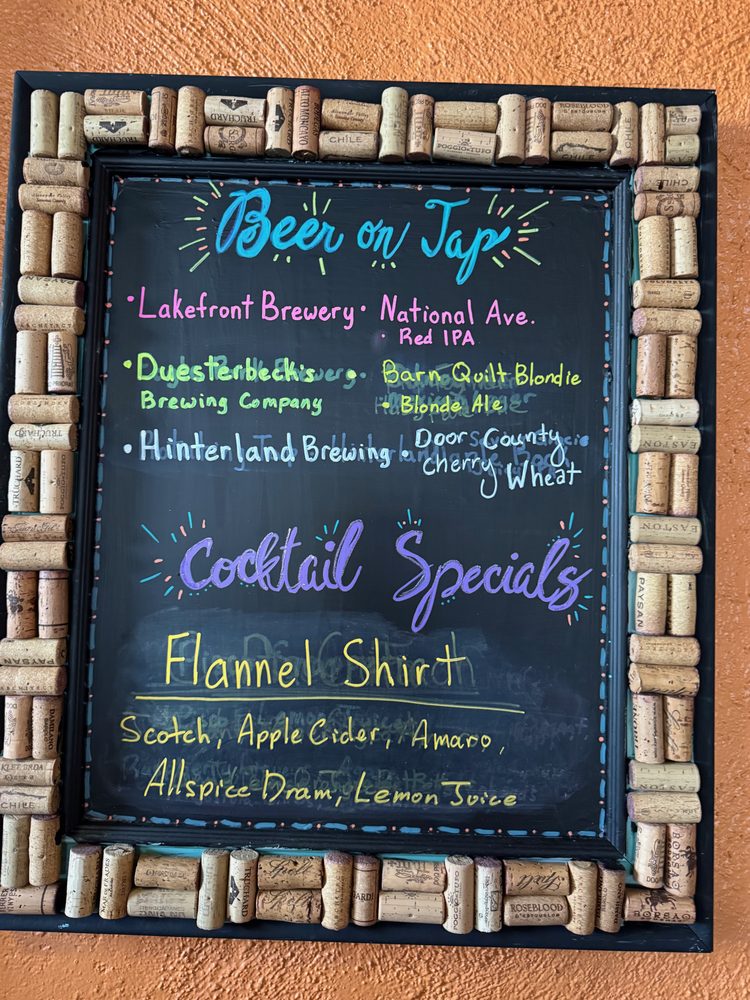 Beer on Tap
• Lakefront Brewery • National Ave.
• Red IPA
• Duesterbeck's • Barn Quilt Blondie
Brewing Company • Blonde Ale
• Hinterland Brewing • Door County
Cherry Wheat
Cocktail Specials
Flannel Shirt
Scotch, Apple Cider, Amaro,
Allspice Dram, Lemon Juice
TRUCHARD
CHILE
POGGIO • TUFO
CHILE
EASTON
EASTON
PAYSAN
PAYSAN
CHILE
TRUCHARD
ROSEBLOOD